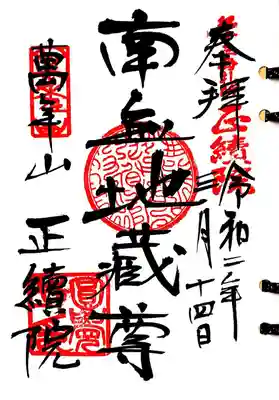 奉拝
令和二年
三月十四日
南無地蔵尊
萬年山
正續院